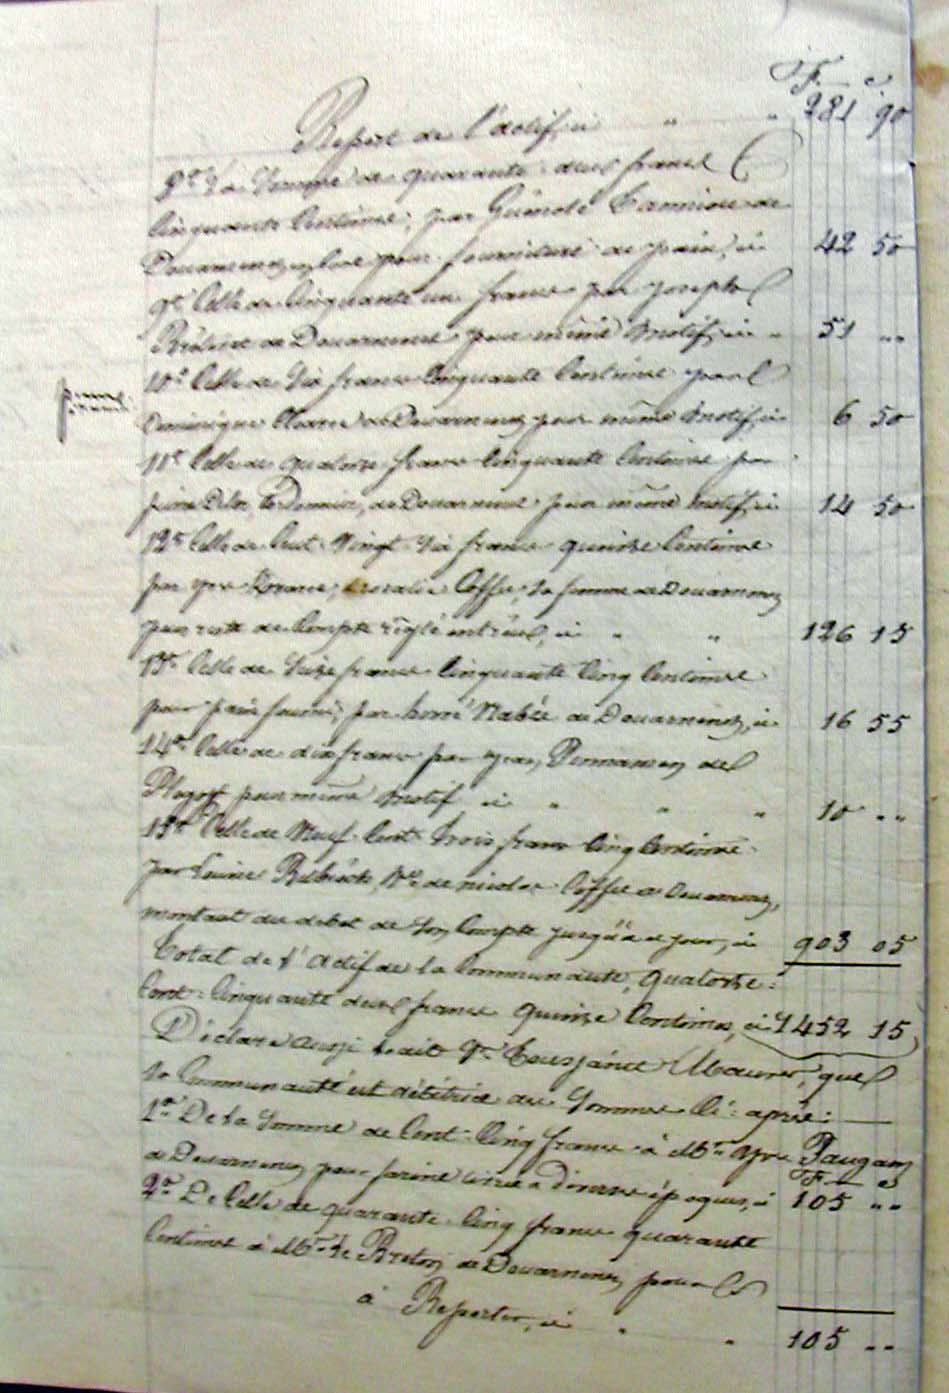 F. c.
Report de l'actif, ci " " 281 90
8º La Somme de quarante deux francs
Cinquante Centimes, par Guénolé de
Douarnenez, pour fourniture de pain, ci 42 50
9º Celle de Cinquante un francs par Joseph
de Douarnenez pour même motif, ci " 51 "
10º Celle de Six francs Cinquante Centimes par
Dominique de Douarnenez pour même motif, ci 6 50
11º Celle de quatorze francs Cinquante Centimes par
de Douarnenez pour même motif, ci 14 50
12º Celle de Cent Vingt Six francs quinze Centimes
par Yves Coffec, Sa femme de Douarnenez
pour reste de Compte réglé entr'eux, ci " " 126 15
13º Celle de Seize francs Cinquante Cinq Centimes
pour pain fourni, par Nabée de Douarnenez, ci 16 55
14º Celle de dix francs par de
pour même motif, ci " " " 10 "
15º Celle de Neuf Cent trois francs Cinq Centimes
par Vve de Nicolas Coffec de Douarnenez,
montant du débet de Son Compte jusqu'à ce jour, ci 903 05
Total de l'actif de la Communauté, quatorze
Cent Cinquante deux francs quinze Centimes, ci 1452 15
Déclare aussi ledit Sr. Toussaint que
la Communauté est débitrice des Sommes Ci-après:
1º De la Somme de Cent Cinq francs à Mr. Yves Paugam
F. c.
de Douarnenez pour farine à diverses époques, ci 105 "
2º De Celle de quarante Cinq francs quarante
Centimes à Mr. Le Breton de Douarnenez pour
à Reporter, ci " " 105 "